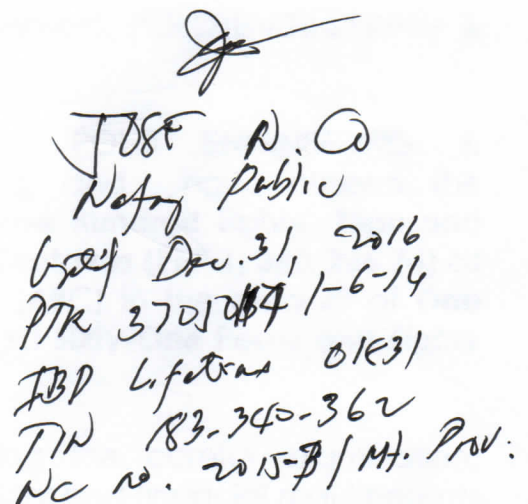 JOSE N. CO
Notary Public
Until Dec. 31, 2016
PTR 1-6-14
IBP Lifetime 01831
TIN 183-340-362
NC no. 2015- / Mt. Prov.